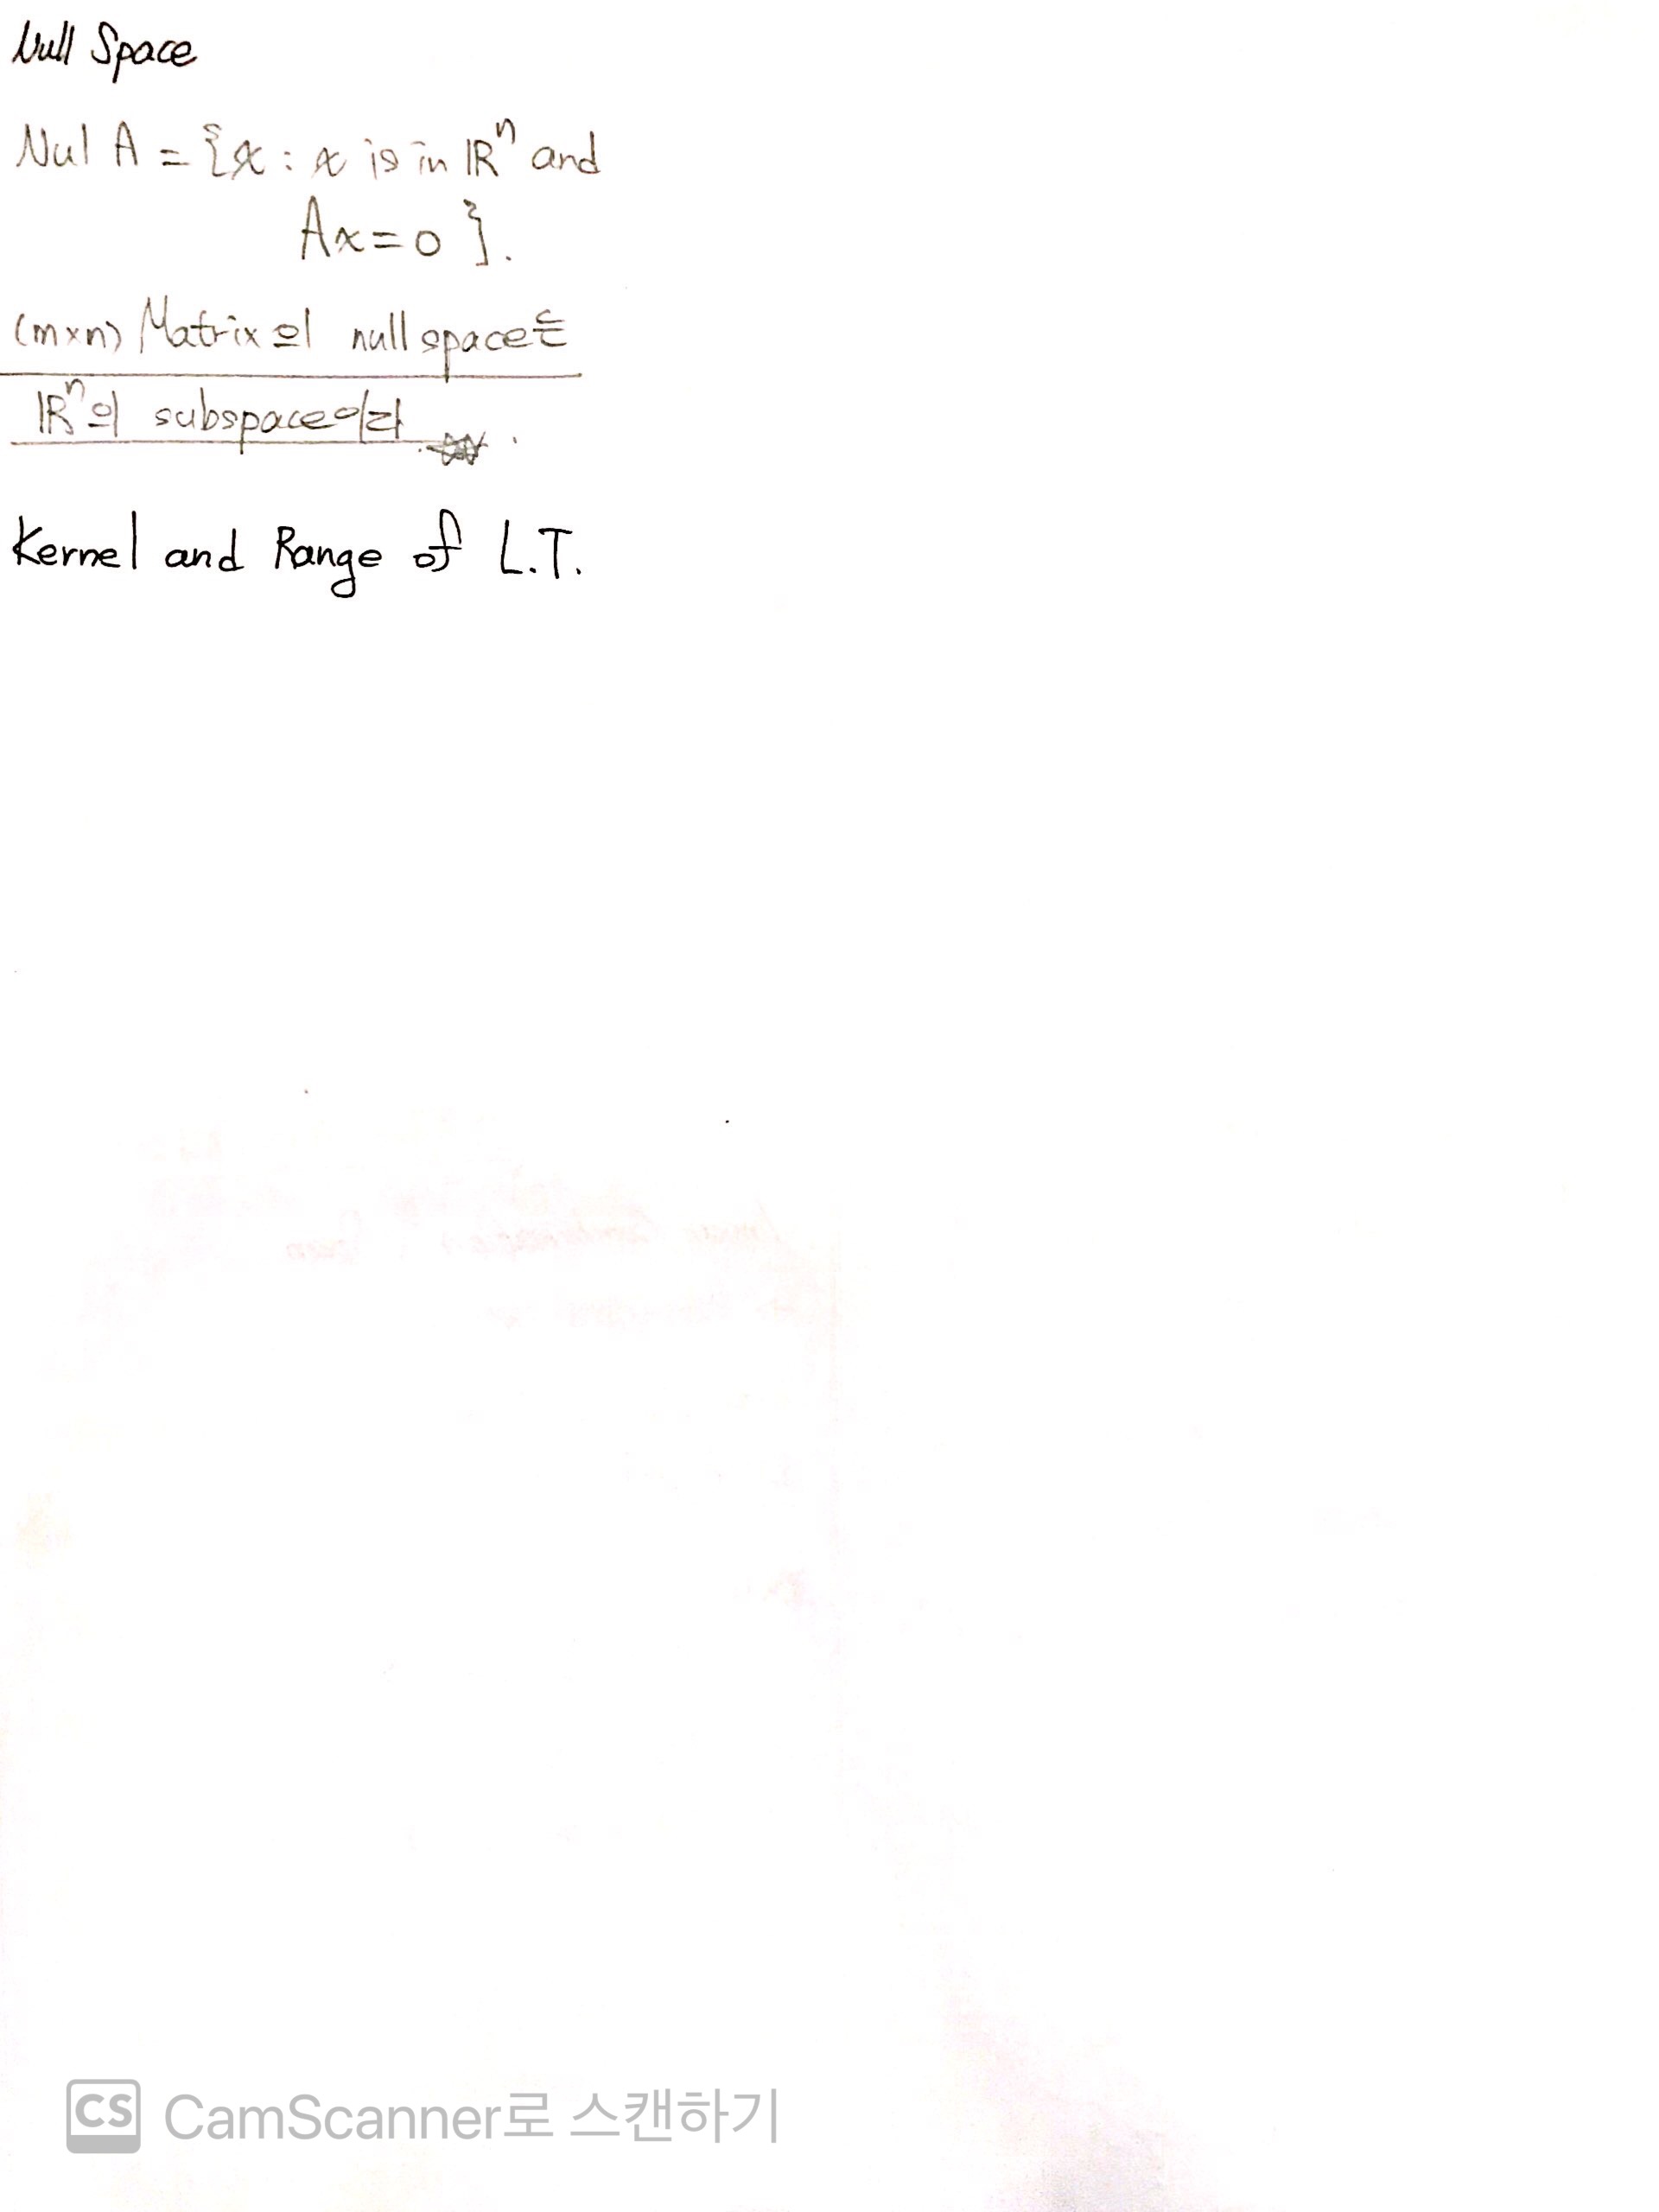 Null Space
Nul A = {x : x is in ℝⁿ and
Ax = 0 }.
(m×n) Matrix의 null space는
ℝⁿ의 subspace이다
Kernel and Range of L.T.
CS CamScanner로 스캔하기